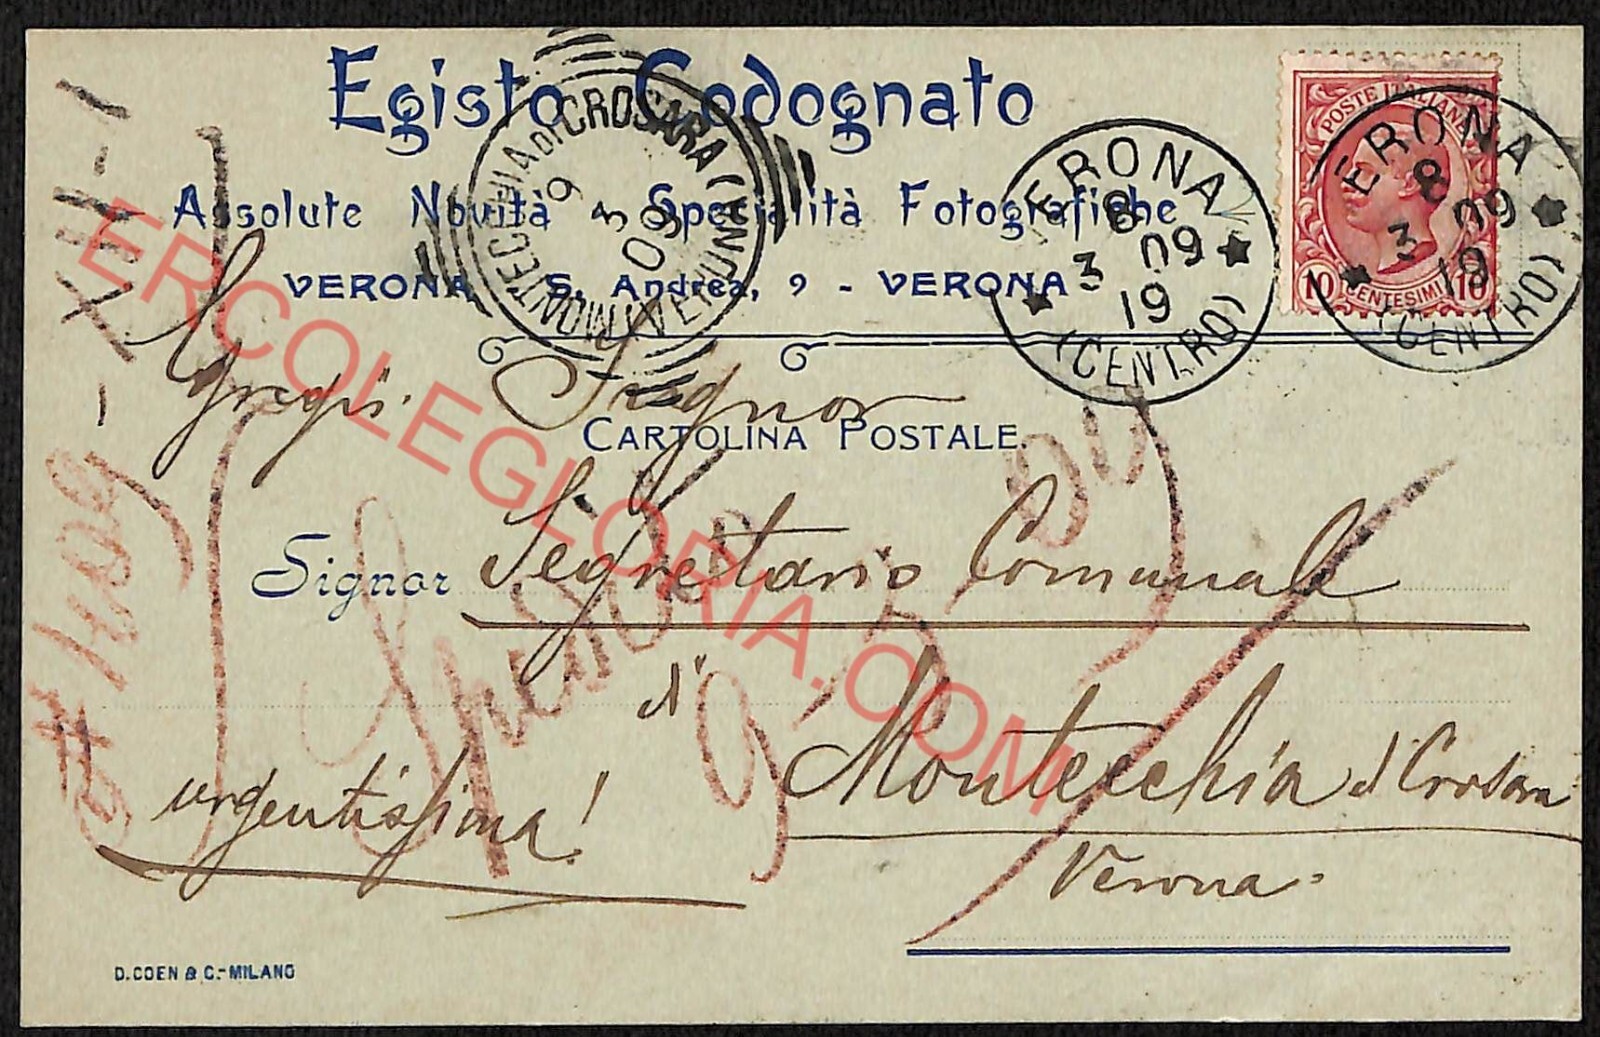 Egisto Codognato
Assolute Novità e Specialità Fotografiche
VERONA - S. Andrea, 9 - VERONA
MONTECCHIA DI CROSARA (VERONA)
9 3 09
VERONA
8
3 09
19
(CENTRO)
POSTE ITALIANE
10 CENTESIMI 10
VERONA
8
3 09
19
(CENTRO)
Egregio Signor
CARTOLINA POSTALE.
Signor Segretario Comunale
di
Montecchia di Crosara
urgentissima!
Verona
D. COEN & C.-MILANO
ERCOLEGLORIA.COM